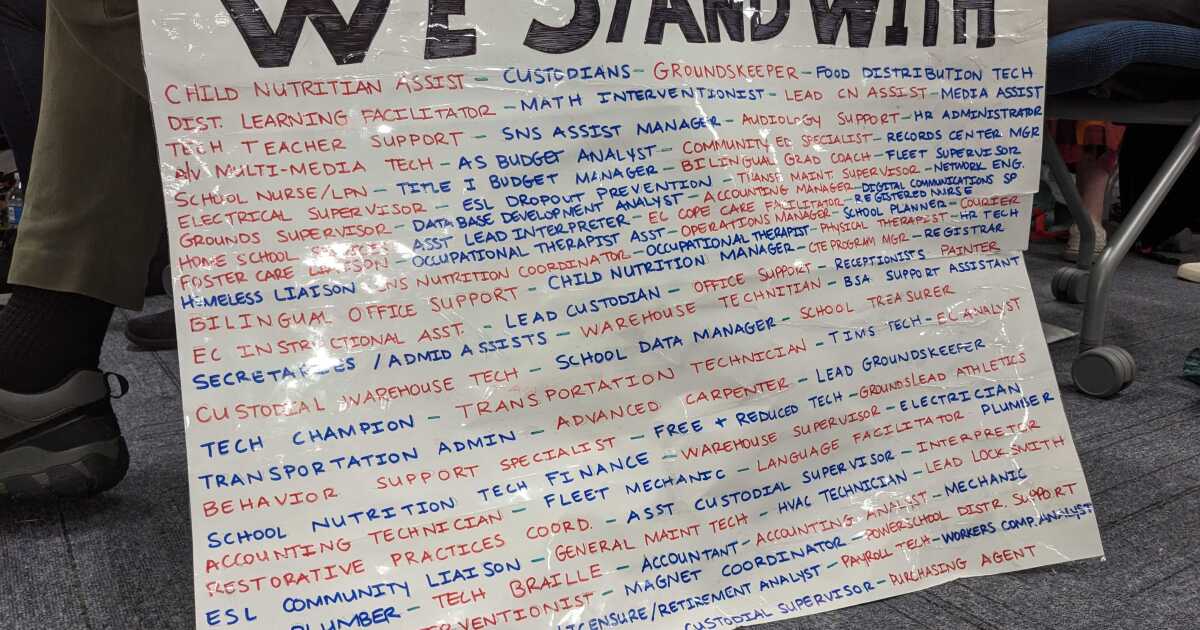 WE STAND WITH
CHILD NUTRITIAN ASSIST - CUSTODIANS - GROUNDSKEEPER - FOOD DISTRIBUTION TECH
DIST. LEARNING FACILITATOR - MATH INTERVENTIONIST - LEAD CN ASSIST - MEDIA ASSIST
TECH TEACHER SUPPORT - SNS ASSIST MANAGER - AUDIOLOGY SUPPORT - HR ADMINISTRATOR
A/V MULTI-MEDIA TECH - AS BUDGET ANALYST - COMMUNITY ED SPECIALIST - RECORDS CENTER MGR
SCHOOL NURSE/LPN - TITLE I BUDGET MANAGER - BILINGUAL GRAD COACH - FLEET SUPERVISOR
ELECTRICAL SUPERVISOR - ESL DROPOUT PREVENTION - TRANS MAINT SUPERVISOR - NETWORK ENG.
GROUNDS SUPERVISOR - DATABASE DEVELOPMENT ANALYST - ACCOUNTING MANAGER - DIGITAL COMMUNICATIONS SP
HOME SCHOOL - ASST LEAD INTERPRETER - EC COPE CARE FACILITATOR - REGISTERED NURSE
FOSTER CARE LIAISON - OCCUPATIONAL THERAPIST ASST - OPERATIONS MANAGER - SCHOOL PLANNER - COURIER
HOMELESS LIAISON - SNS NUTRITION COORDINATOR - OCCUPATIONAL THERAPIST - PHYSICAL THERAPIST - HR TECH
BILINGUAL OFFICE SUPPORT - CHILD NUTRITION MANAGER - CTE PROGRAM MGR - REGISTRAR
EC INSTRUCTIONAL ASST. - LEAD CUSTODIAN - OFFICE SUPPORT - RECEPTIONISTS PAINTER
SECRETARIES / ADMID ASSISTS - WAREHOUSE TECHNITIAN - BSA SUPPORT ASSISTANT
CUSTODIAL WAREHOUSE TECH - SCHOOL DATA MANAGER - SCHOOL TREASURER
TECH CHAMPION - TRANSPORTATION TECHNICIAN - TIMS TECH - EC ANALYST
TRANSPORTATION ADMIN - ADVANCED CARPENTER - LEAD GROUNDSKEEPER
BEHAVIOR SUPPORT SPECIALIST - FREE + REDUCED TECH - GROUNDS/LEAD ATHLETICS
SCHOOL NUTRITION TECH FINANCE - WAREHOUSE SUPERVISOR - ELECTRICIAN
ACCOUNTING TECHNICIAN - FLEET MECHANIC - LANGUAGE FACILITATOR PLUMBER
RESTORATIVE PRACTICES COORD. - ASST CUSTODIAL SUPERVISOR - INTERPRETOR
ESL COMMUNITY LIAISON - GENERAL MAINT TECH - HVAC TECHNICIAN - LEAD LOCKSMITH
PLUMBER - TECH BRAILLE - ACCOUNTANT - ACCOUNTING ANALYST - MECHANIC
MAGNET COORDINATOR - POWERSCHOOL DISTR. SUPPORT
LICENSURE/RETIREMENT ANALYST - PAYROLL TECH - WORKERS COMP. ANALYST
CUSTODIAL SUPERVISOR - PURCHASING AGENT